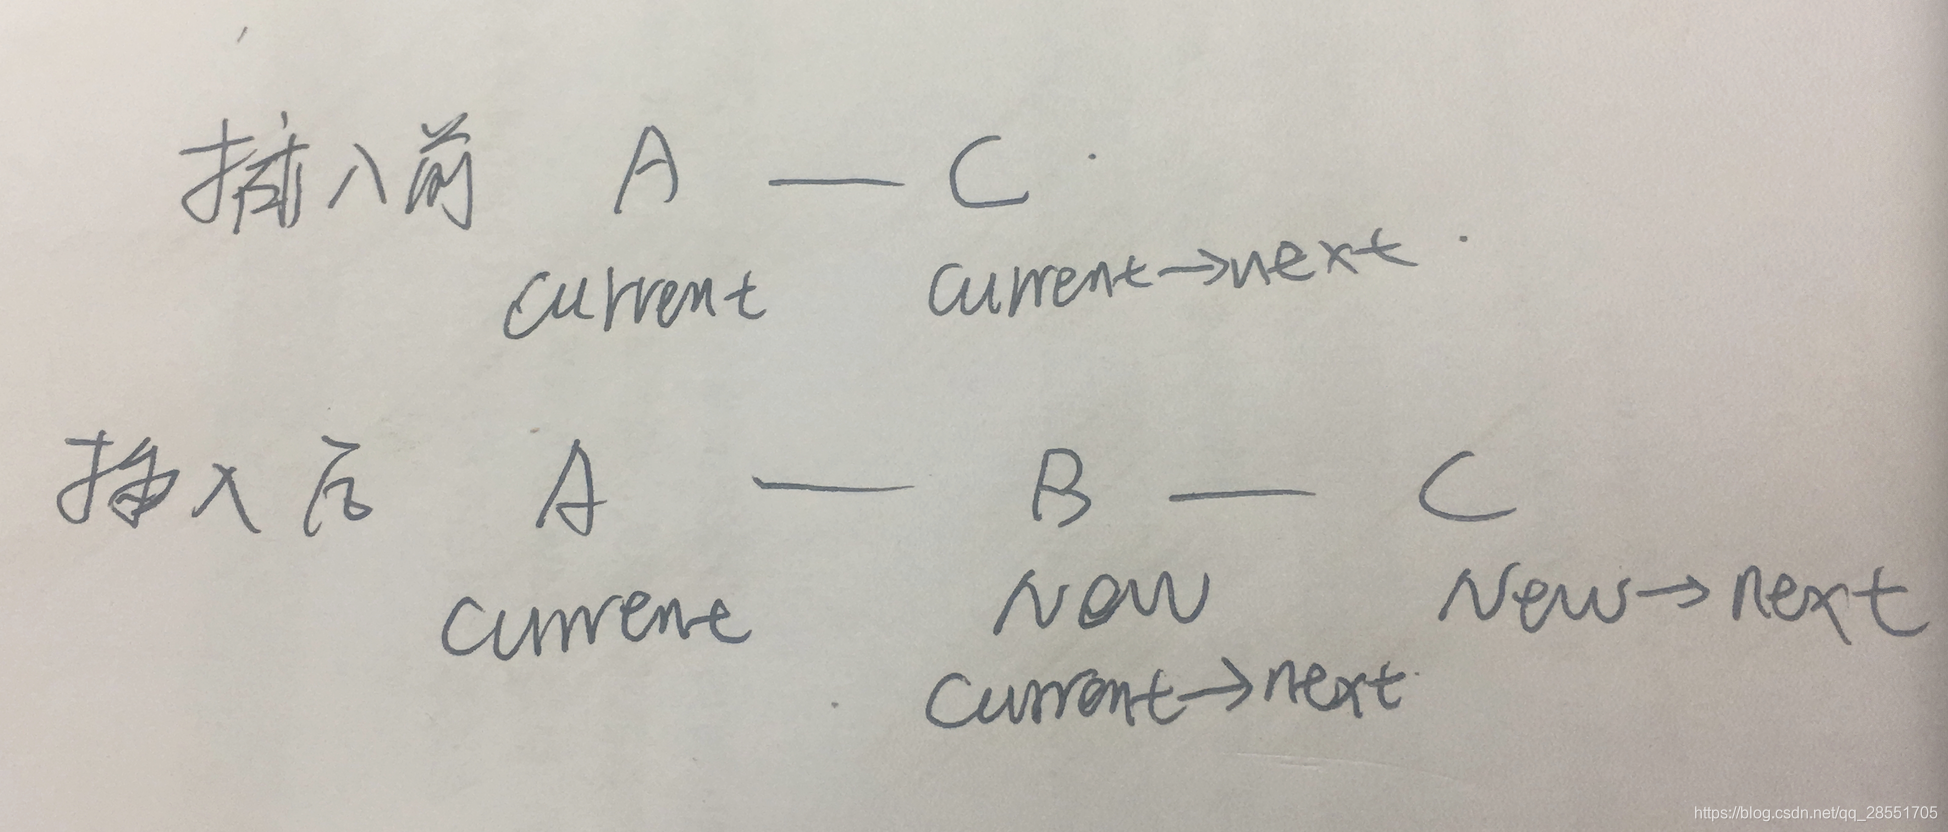 插入前 A — C
current current→next
插入后 A — B — C
current New New→next
current→next
https://blog.csdn.net/qq_28551705